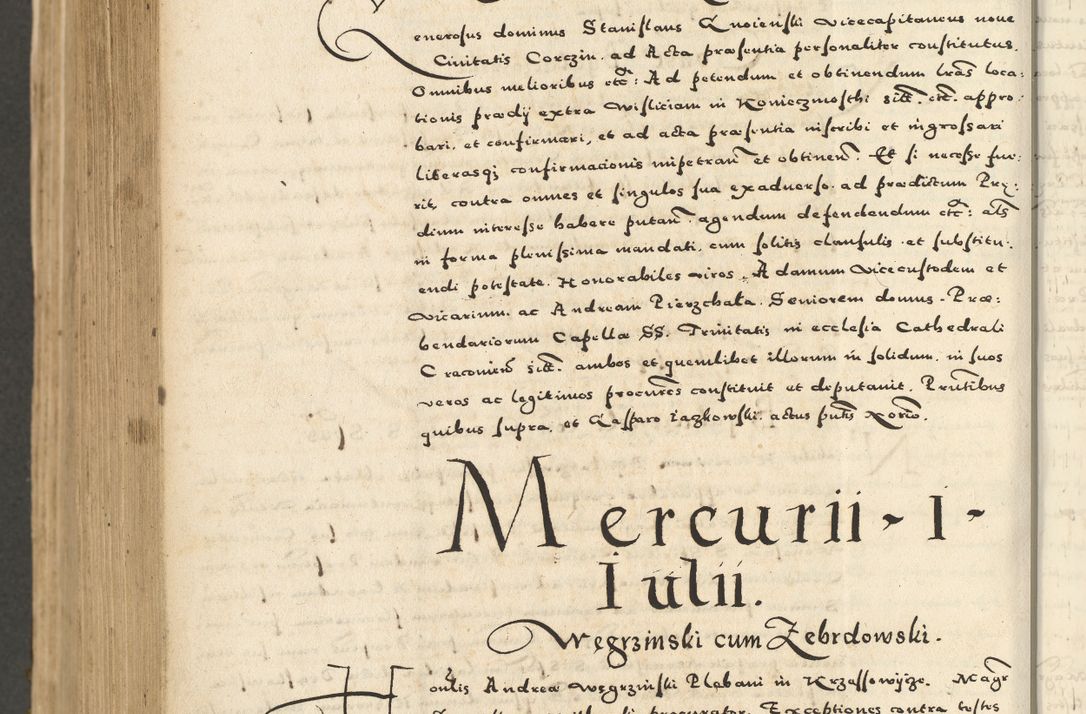 Generosus dominus Stanislaus Gnoienski vicecapitaneus noue
Ciuitatis Corczin. ad Acta præsentia personaliter constitutus.
Omnibus melioribus etc: Ad petendum et obtinendum lras loca:
tionis prædij extra Wisliciam in Koniecżmosthi sitt. etc. appro:
bari. et confirmari, et ad acta præsentia inscribi et ingrossari
literasq confirmacionis impetran et obtinen. Et si necesse fue:
rit, contra omnes et singulos sua exaduerso. ad prædictum Præ:
dium interesse habere putan. agendum defendendum etc: als
in forma plenissima mandati. cum solitis clausulis. et substitu:
endi potestate. Honorabiles viros. Adamum Vicecustodem et
Vicarium. ac Andream Pierzchała. Seniorem domus. Præ:
bendariorum Capellæ SS. Trinitatis in ecclesia Cathedrali
Cracouien sitt. ambos et quemlibet illorum in solidum. in suos
veros ac legitimos procures constituit et deputauit. Prntibus
quibus supra. et Gasparo Iazkowski. actus pntis Notorio.
Mercurii - I -
Iulii.
Węgrzinski cum Zebrdowski.
Honlis Andreæ Węgrzinski Plebani in Krzessowycże. Magr
procurator. Exceptiones contra testes